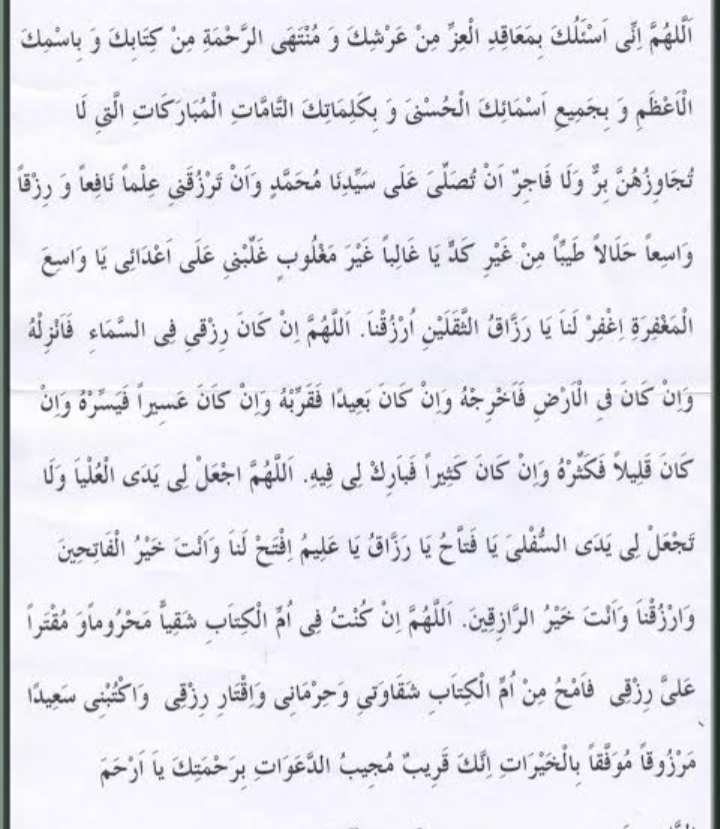 اَللهُمَّ اِنِّى اَسْئَلُكَ بِمَعَاقِدِ الْعِزِّ مِنْ عَرْشِكَ وَ مُنْتَهَى الرَّحْمَةِ مِنْ كِتَابِكَ وَ بِاسْمِكَ
الْاَعْظَمِ وَ بِجَمِيعِ اَسْمَائِكَ الْحُسْنىَ وَ بِكَلِمَاتِكَ التَّامَّاتِ الْمُبَارَكَاتِ الَّتِى لَا
تُجَاوِزُهُنَّ بِرٌّ وَلَا فَاجِرٌ اَنْ تُصَلِّىَ عَلَى سَيِّدِنَا مُحَمَّدٍ وَاَنْ تَرْزُقَنِى عِلْماً نَافِعاً وَ رِزْقاً
وَاسِعاً حَلَالاً طَيِّباً مِنْ غَيْرِ كَدٍّ يَا غَالِباً غَيْرَ مَغْلُوبٍ غَلِّبْنِى عَلَى اَعْدَائِى يَا وَاسِعَ
الْمَغْفِرَةِ اِغْفِرْ لَناَ يَا رَزَّاقُ الثَّقَلَيْنِ اُرْزُقْناَ. اَللَّهُمَّ اِنْ كَانَ رِزْقِى فِى السَّمَاءِ فَاَنْزِلْهُ
وَاِنْ كَانَ فىِ الْاَرْضِ فَاَخْرِجْهُ وَاِنْ كَانَ بَعِيدًا فَقَرِّبْهُ وَاِنْ كاَنَ عَسِيراً فَيَسِّرْهُ وَاِنْ
كَانَ قَلِيلاً فَكَثِّرْهُ وَاِنْ كَانَ كَثِيراً فَبَارِكْ لِى فِيهِ. اَللَّهُمَّ اجْعَلْ لِى يَدَى الْعُلْياَ وَلَا
تَجْعَلْ لِى يَدَى السُّفْلىَ يَا فَتَّاحُ يَا رَزَّاقُ يَا عَلِيمُ اِفْتَحْ لَناَ وَاَنْتَ خَيْرُ الْفَاتِحِينَ
وَارْزُقْناَ وَاَنْتَ خَيْرُ الرَّازِقِينَ. اَللَّهُمَّ اِنْ كُنْتُ فِى اُمِّ الْكِتاَبِ شَقِياًّ مَحْرُوماًوَ مُقْتَراً
عَلىَّ رِزْقِى فاَمْحُ مِنْ اُمِّ الْكِتاَبِ شَقَاوَتىِ وَحِرْمَانِى وَاِقْتَارِ رِزْقِى وَاكْتُبْنِى سَعِيدًا
مَرْزُوقاً مُوَفَّقاً بِالْخَيْرَاتِ اِنَّكَ قَرِيبٌ مُجِيبُ الدَّعَوَاتِ بِرَحْمَتِكَ ياَ اَرْحَمَ